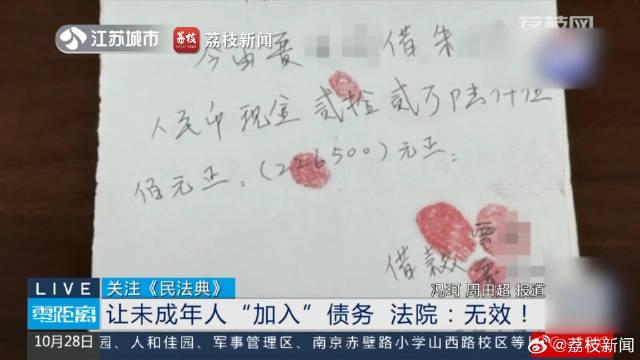 江苏城市 荔枝新闻
荔枝网
今由贾 借朱
人民币现金贰拾贰万陆仟伍
佰元正。(226500)元正。
借款 贾
LIVE 关注《民法典》
冯珂 周田超 报道
零距离 让未成年人“加入”债务 法院：无效！
10月28日 园、人和佳园、军事管理区、南京赤壁路小学山西路校区等
@荔枝新闻